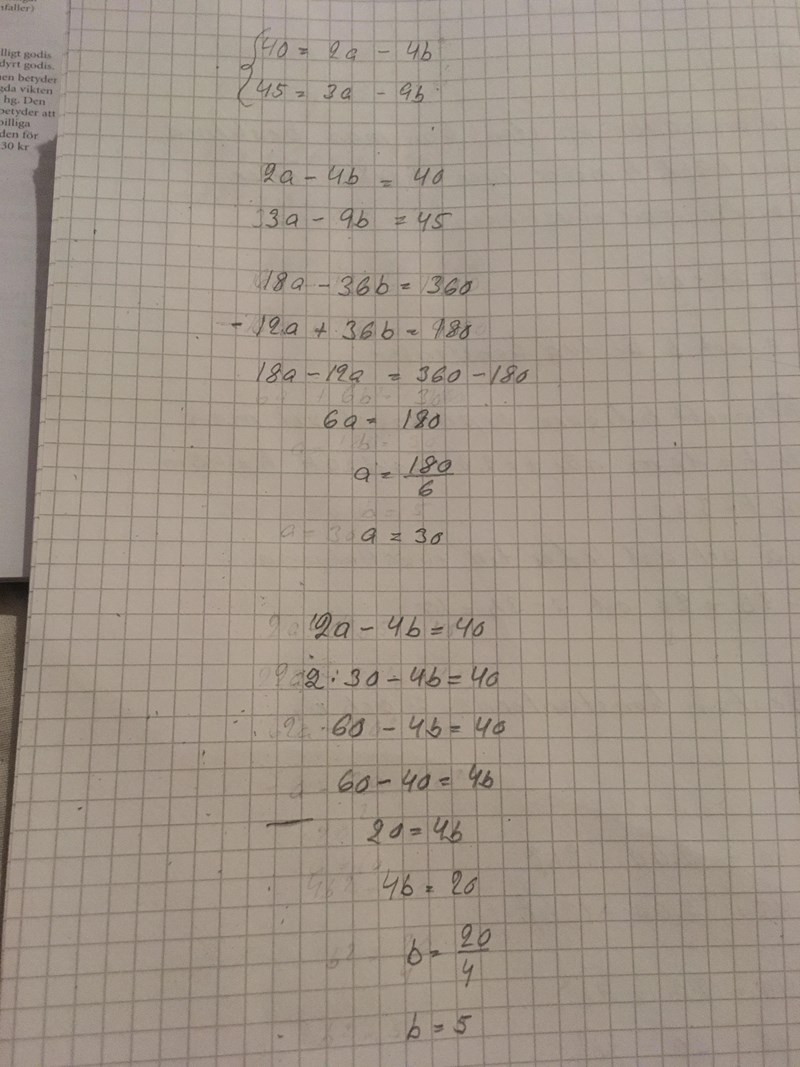 sfaller)
lligt godis
dyrt godis.
en betyder
gda vikten
hg. Den
betyder att
billiga
den för
30 kr
40 = 2a - 4b
45 = 3a - 9b
2a - 4b = 40
3a - 9b = 45
18a - 36b = 360
- 12a + 36b = 180
18a - 12a = 360 - 180
6a = 180
a = 180/6
a = 30
2a - 4b = 40
2 · 30 - 4b = 40
60 - 4b = 40
60 - 40 = 4b
20 = 4b
4b = 20
b = 20/4
b = 5